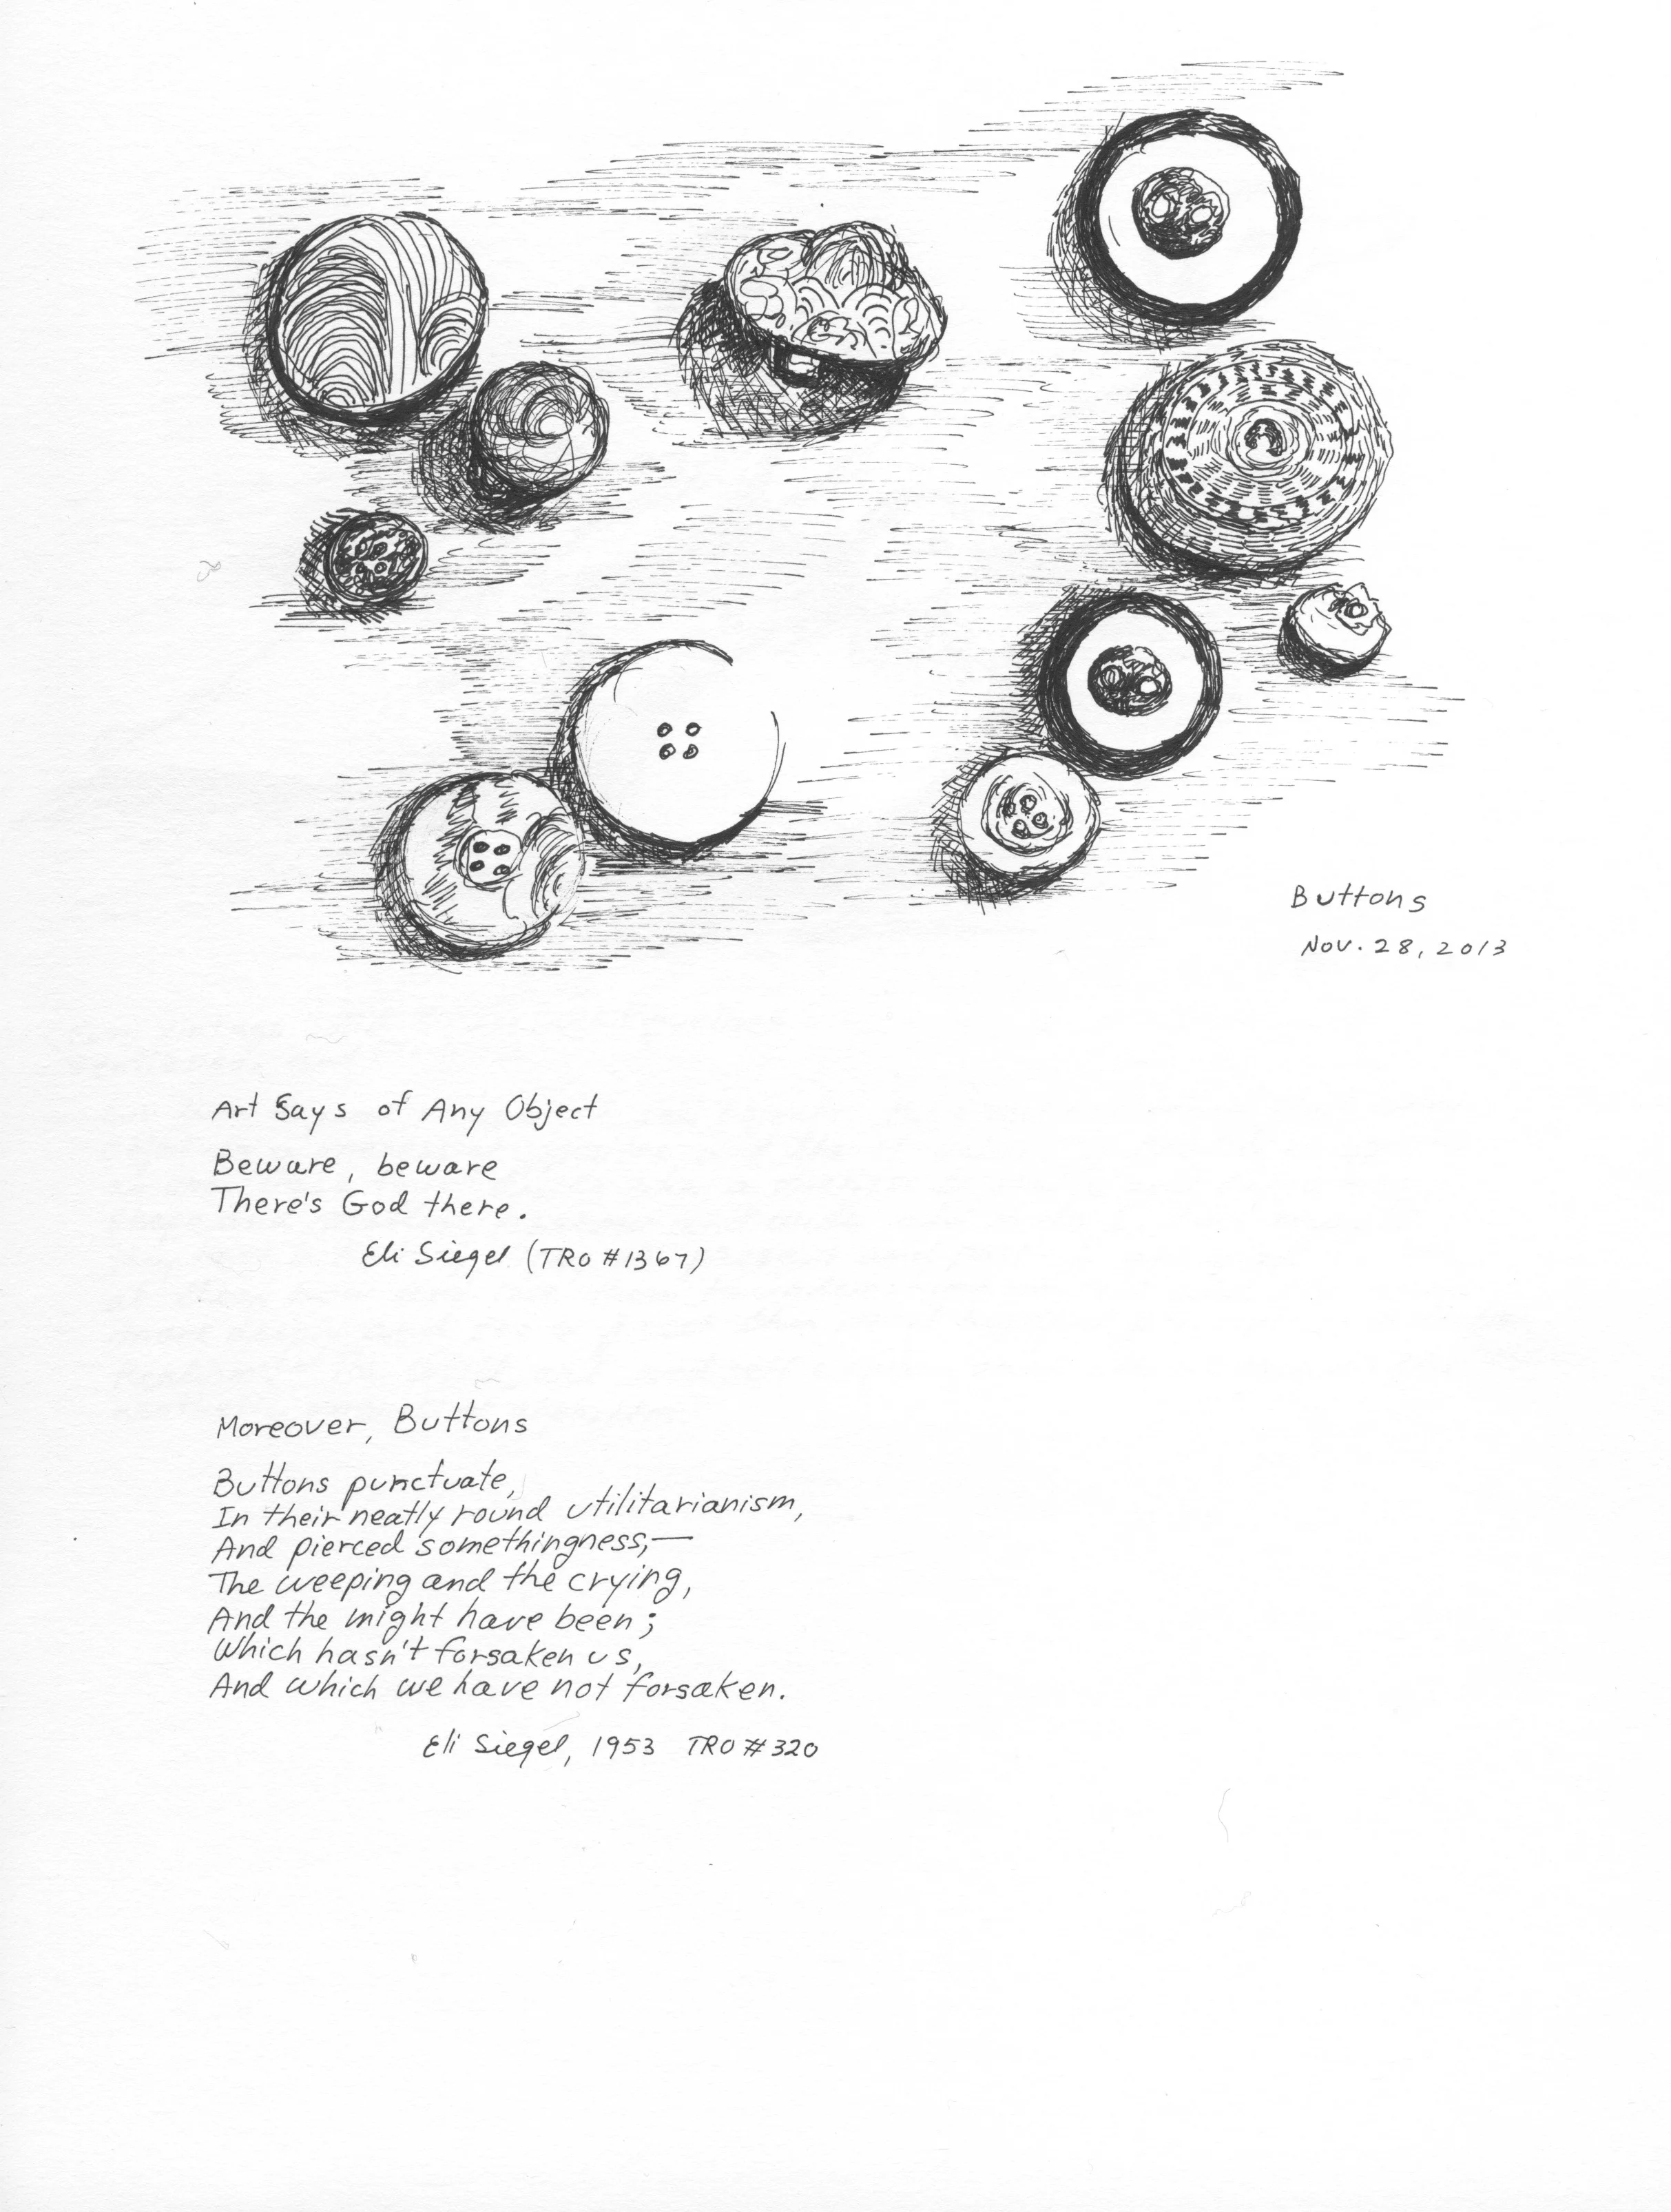 Buttons
Nov. 28, 2013
Art Says of Any Object
Beware, beware
There's God there.
Eli Siegel (TRO #1367)
Moreover, Buttons
Buttons punctuate,
In their neatly round utilitarianism,
And pierced somethingness;—
The weeping and the crying,
And the might have been;
Which hasn't forsaken us,
And which we have not forsaken.
Eli Siegel, 1953 TRO #320